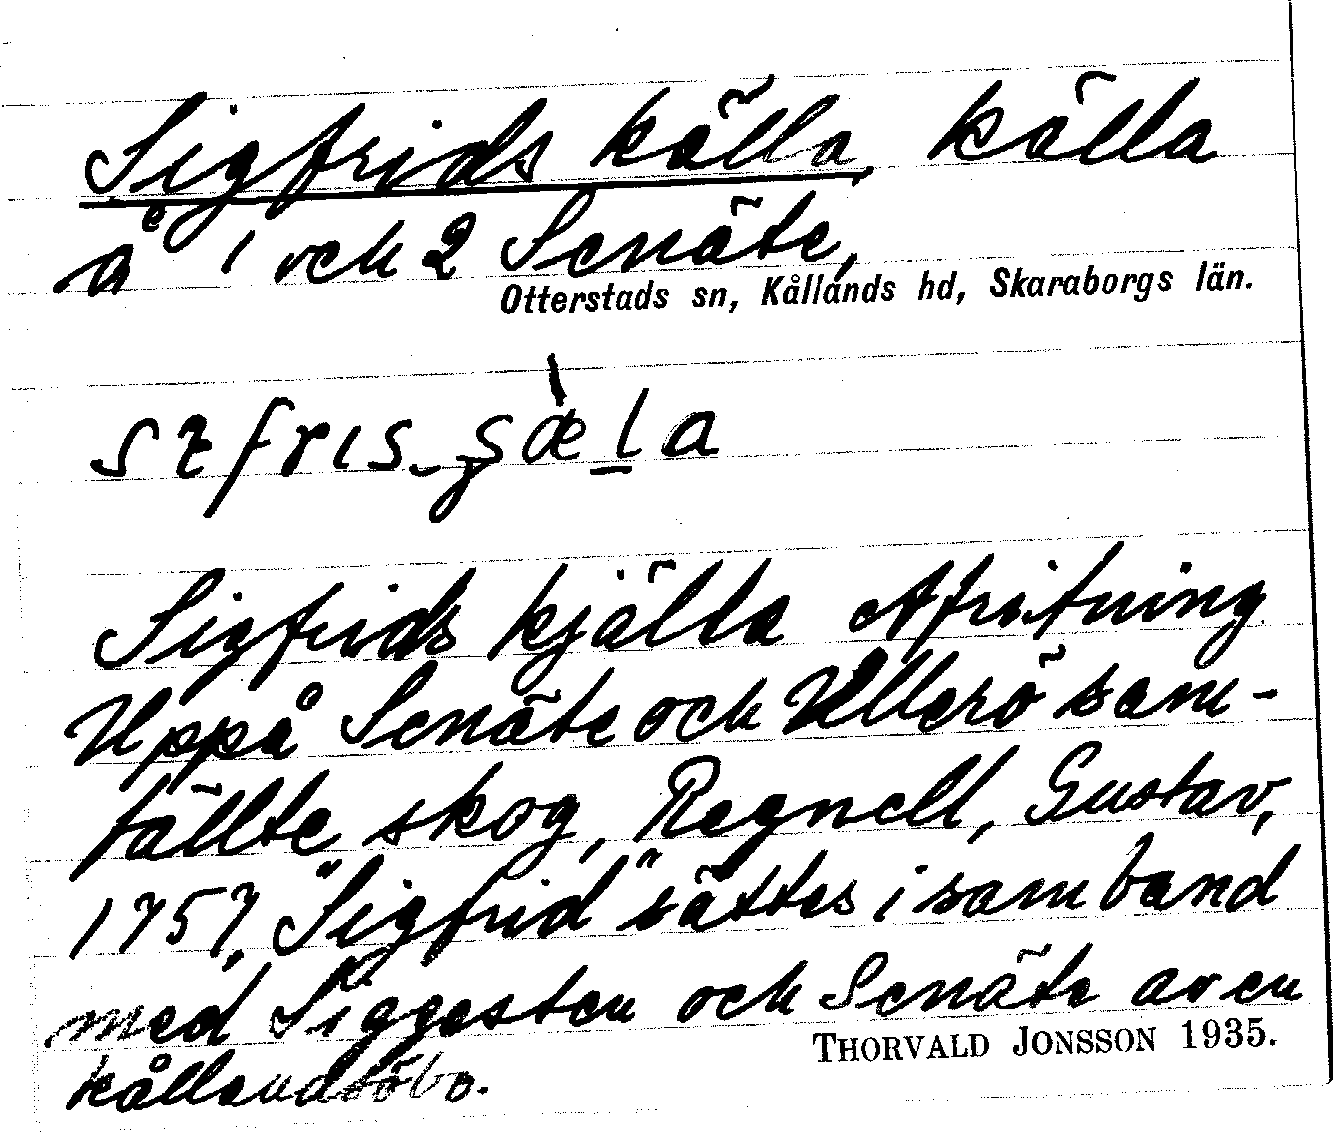 Sigfrids källa, källa
å 1 och 2 Senäte,
Otterstads sn, Kållands hd, Skaraborgs län.
Sigfrids kjälla Afritning
Uppå Senäte och Ullerö sam-
fällte skog, Regnell, Gustav,
1757, "Sigfrid" sättes i samband
med Siggesten och Senäte av en
kållandsöbo.
THORVALD JONSSON 1935.